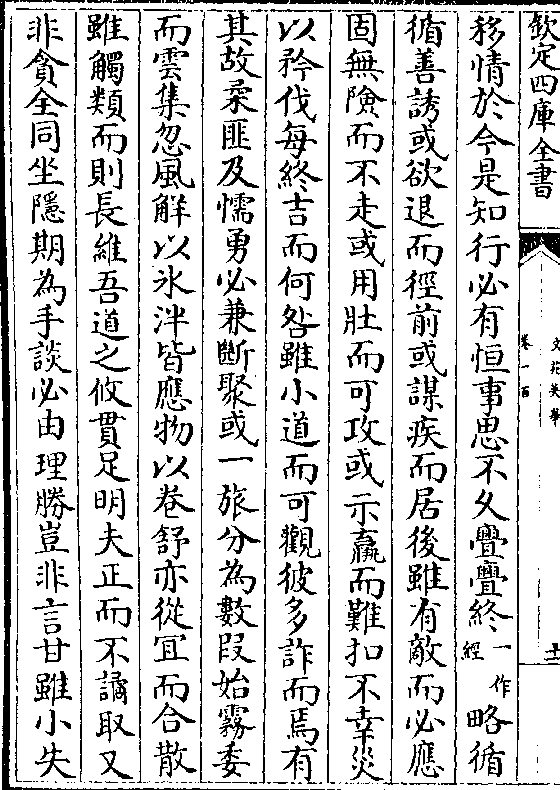 欽定四庫全書
文苑英華
卷一百
十一
移情於今是知行必有恒事思不乆亹亹終一作經略循
循善誘或欲退而徑前或謀疾而居後雖有敵而必應
固無險而不走或用壯而可攻或示羸而難扣不幸災
以矜伐每終吉而何咎雖小道而可觀彼多詐而焉有
其故柔匪及懦勇必兼斷聚或一旅分為數段始霧委
而雲集忽風解以氷泮皆應物以卷舒亦從宜而合散
雖觸類而則長維吾道之攸貫足明夫正而不譎取又
非貪全同坐隱期為手談必由理勝豈非言甘雖小失